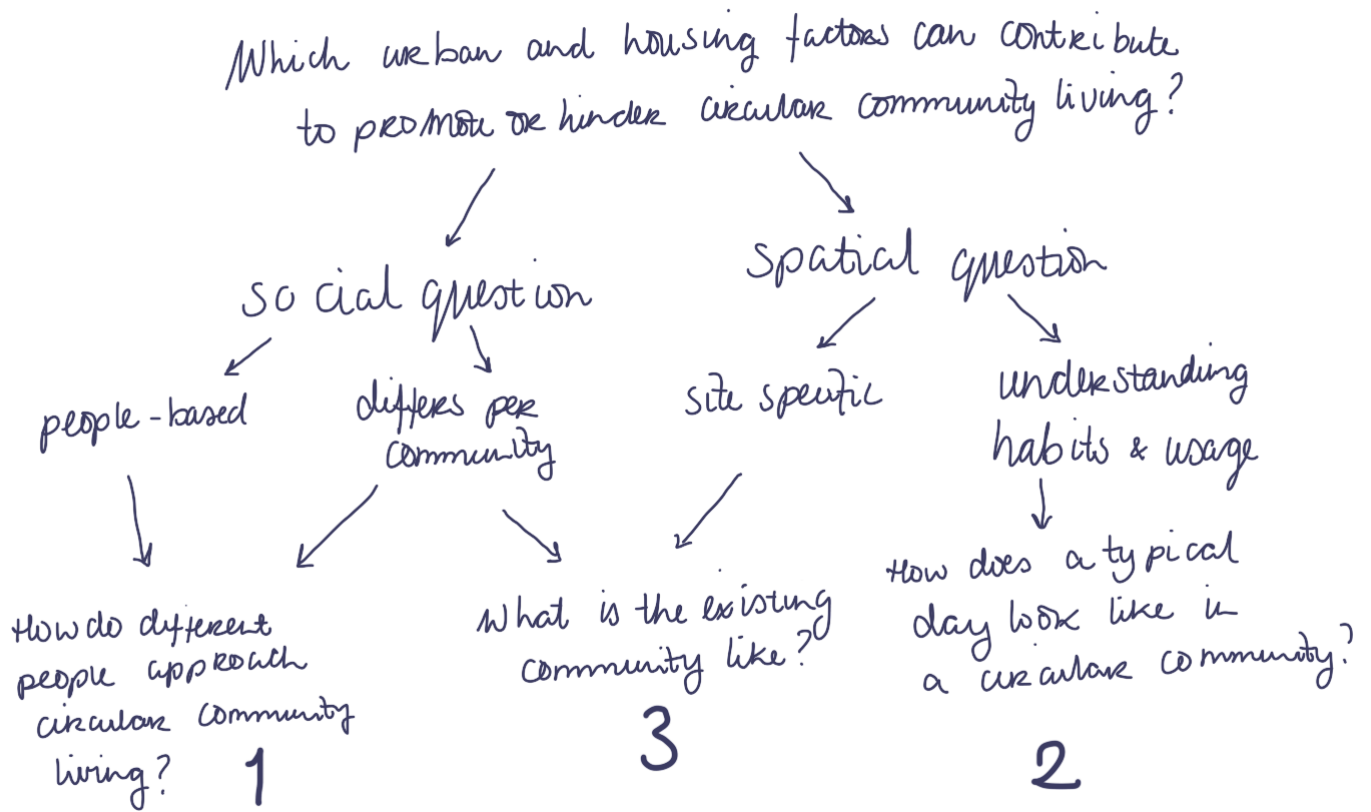 Which urban and housing factors can contribute
to promote or hinder circular community living?
social question
spatial question
people-based
differs per
community
site specific
understanding
habits & usage
How do different
people approach
circular community
living? 1
What is the existing
community like?
3
How does a typical
day look like in
a circular community?
2